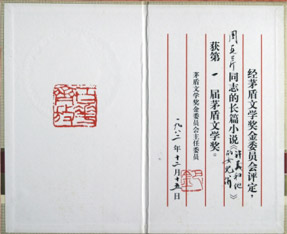 经茅盾文学奖金委员会评定，
周克芹同志的长篇小说《许茂和他
的女儿们》
获第一届茅盾文学奖。
茅盾文学奖金委员会主任委员
一九八二年十二月十五日